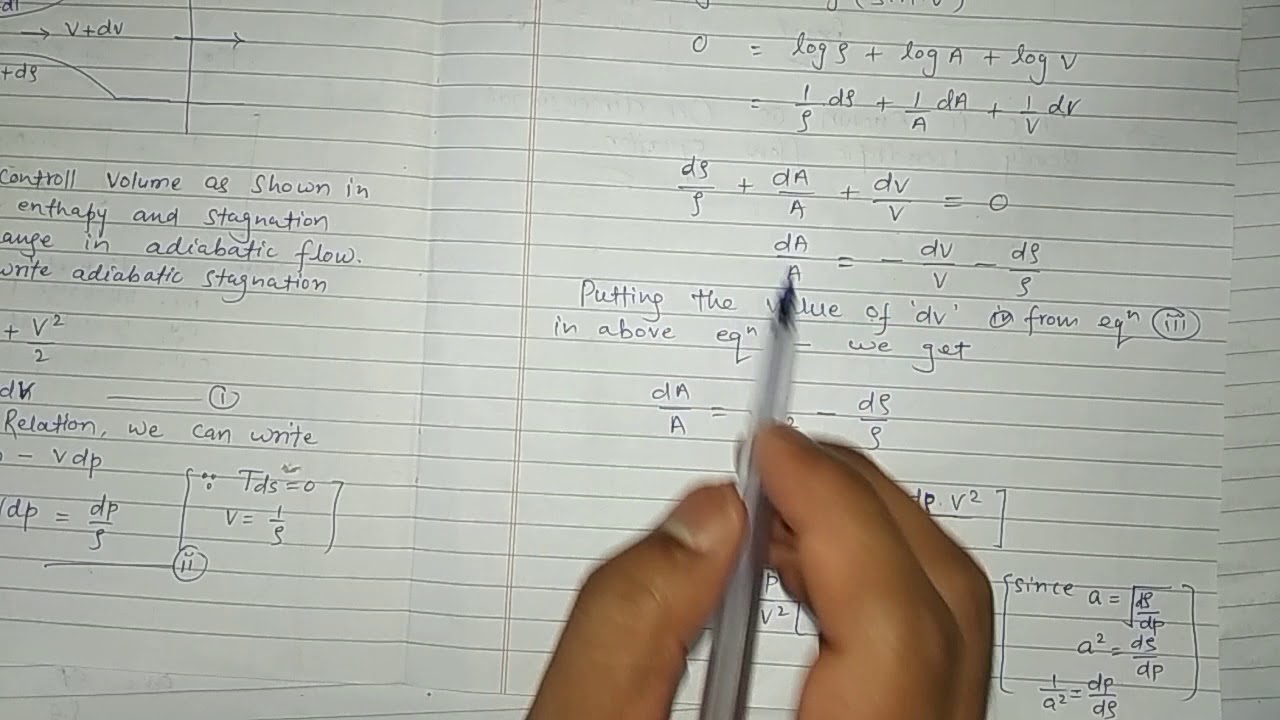 → V+dv
+dρ
Controll volume as shown in
enthapy and stagnation
ange in adiabatic flow.
write adiabatic stagnation
+ V²/2
dV ——— (i)
Relation, we can write
- vdp
[∵ Tds = 0
dp = dp/ρ
V = 1/ρ]
——— (ii)
0 = log ρ + log A + log V
= 1/ρ dρ + 1/A dA + 1/V dv
dρ/ρ + dA/A + dv/V = 0
dA/A = - dv/V - dρ/ρ
Putting the value of 'dv' from eqⁿ (iii)
in above eqⁿ we get
dA/A = - dρ/ρ
dp. V²]
P
V²[
[since a = √dρ/dp
a² = dρ/dp
1/a² = dp/dρ]